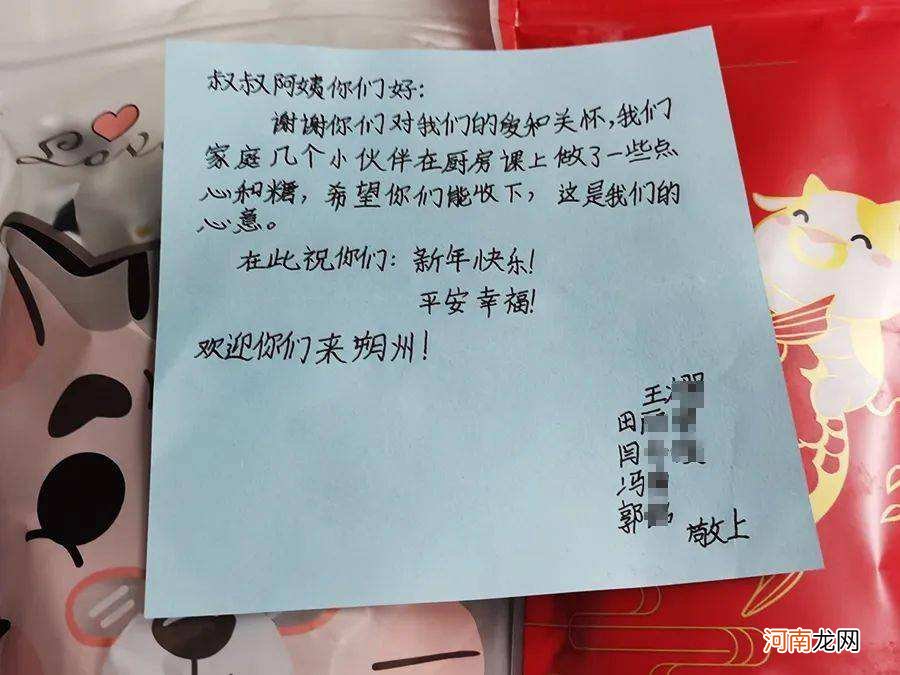 Love
叔叔阿姨你们好:
谢谢你们对我们的爱和关怀,我们
家庭几个小伙伴在厨房课上做了一些点
心和糖,希望你们能收下,这是我们的
心意。
在此祝你们:新年快乐!
平安幸福!
欢迎你们来朔州!
王
田
闫
冯
郭
敬上
河南龙网